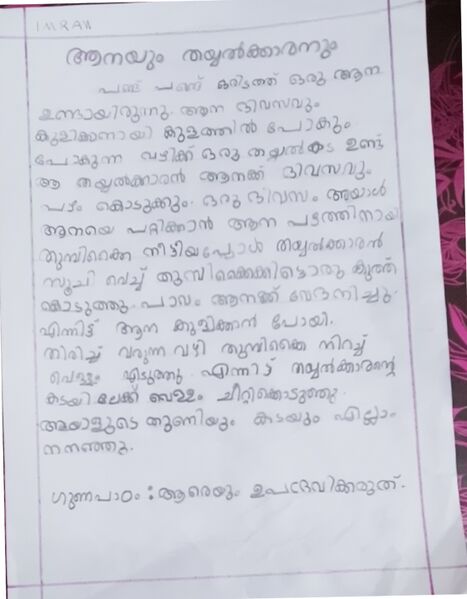 IMRAN
ആനയും തയ്യൽക്കാരനും
പണ്ട് പണ്ട് ഒരിടത്ത് ഒരു ആന
ഉണ്ടായിരുന്നു. ആന ദിവസവും
കുളിക്കാനായി കുളത്തിൽ പോകും.
പോകുന്ന വഴിക്ക് ഒരു തയ്യൽകട ഉണ്ട്
ആ തയ്യൽക്കാരൻ ആനക്ക് ദിവസവും
പഴം കൊടുക്കും. ഒരു ദിവസം അയാൾ
ആനയെ പറ്റിക്കാൻ ആന പഴത്തിനായി
തുമ്പിക്കൈ നീട്ടിയപ്പോൾ തയ്യൽക്കാരൻ
സൂചി വെച്ച് തുമ്പിക്കൈക്കിട്ടൊരു കുത്ത്
കൊടുത്തു. പാവം ആനക്ക് വേദനിച്ചു.
എന്നിട്ട് ആന കുളിക്കാൻ പോയി.
തിരിച്ച് വരുന്ന വഴി തുമ്പിക്കൈ നിറച്ച്
വെള്ളം എടുത്തു. എന്നിട്ട് തയ്യൽക്കാരന്റെ
കടയിലേക്ക് വെള്ളം ചീറ്റിക്കൊടുത്തു.
അയാളുടെ തുണിയും കടയും എല്ലാം
നനഞ്ഞു.
ഗുണപാഠം : ആരെയും ഉപദ്രവിക്കരുത്.